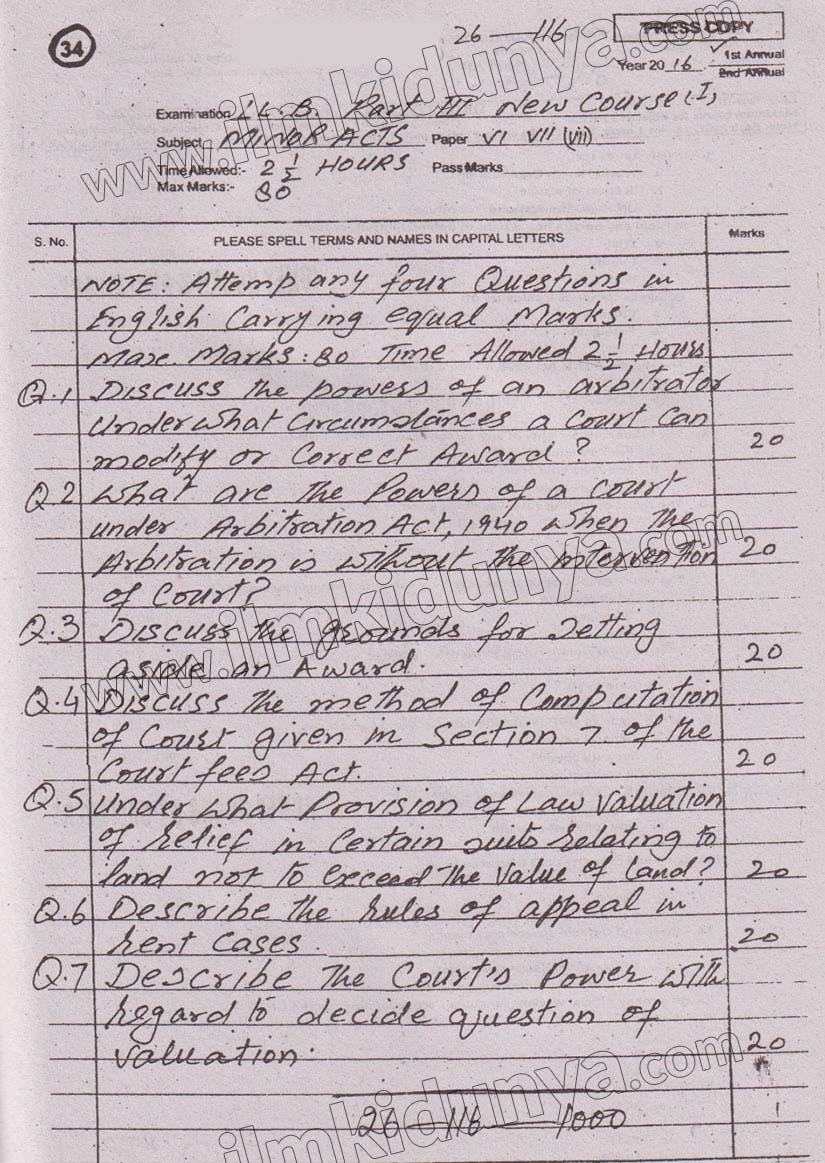 34
26 — 116
PRESS COPY
Year 2016 1st Annual
2nd Annual
Examination LL.B. Part III New Course (I)
Subject :- MINOR ACTS Paper VI VII (vii)
Time Allowed:- 2 1/2 HOURS Pass Marks
Max Marks:- 80
S. No. PLEASE SPELL TERMS AND NAMES IN CAPITAL LETTERS Marks
NOTE: Attemp any four Questions in
English Carrying equal Marks.
Max. Marks: 80 Time Allowed 2 1/2 Hours
Q.1 Discuss the powers of an arbitrator
Under what Circumstances a Court Can
modify or Correct Award? 20
Q.2 What are the Powers of a court
under Arbitration Act, 1940 when the
Arbitration is without the intervention 20
of Court?
Q.3 Discuss the grounds for setting
aside an Award. 20
Q.4 Discuss the method of Computation
of Court given in Section 7 of the
Court fees Act. 20
Q.5 Under what Provision of Law Valuation
of relief in Certain suits relating to
land not to exceed the value of land? 20
Q.6 Describe the rules of appeal in
rent Cases. 20
Q.7 Describe the Court's Power with
regard to decide question of
Valuation. 20
26 — 116 — 1000
www.ilmkidunya.com
www.ilmkidunya.com
www.ilmkidunya.com